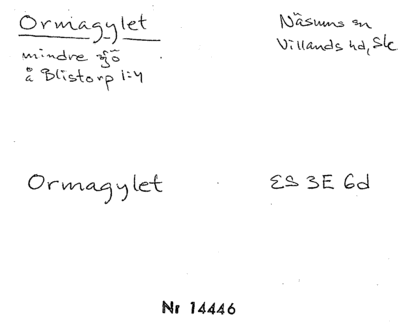 Ormagylet
mindre sjö
å Blistorp 1:4
Näsums sn
Villands hd, Sk
Ormagylet
ES 3E 6d
Nr 14446